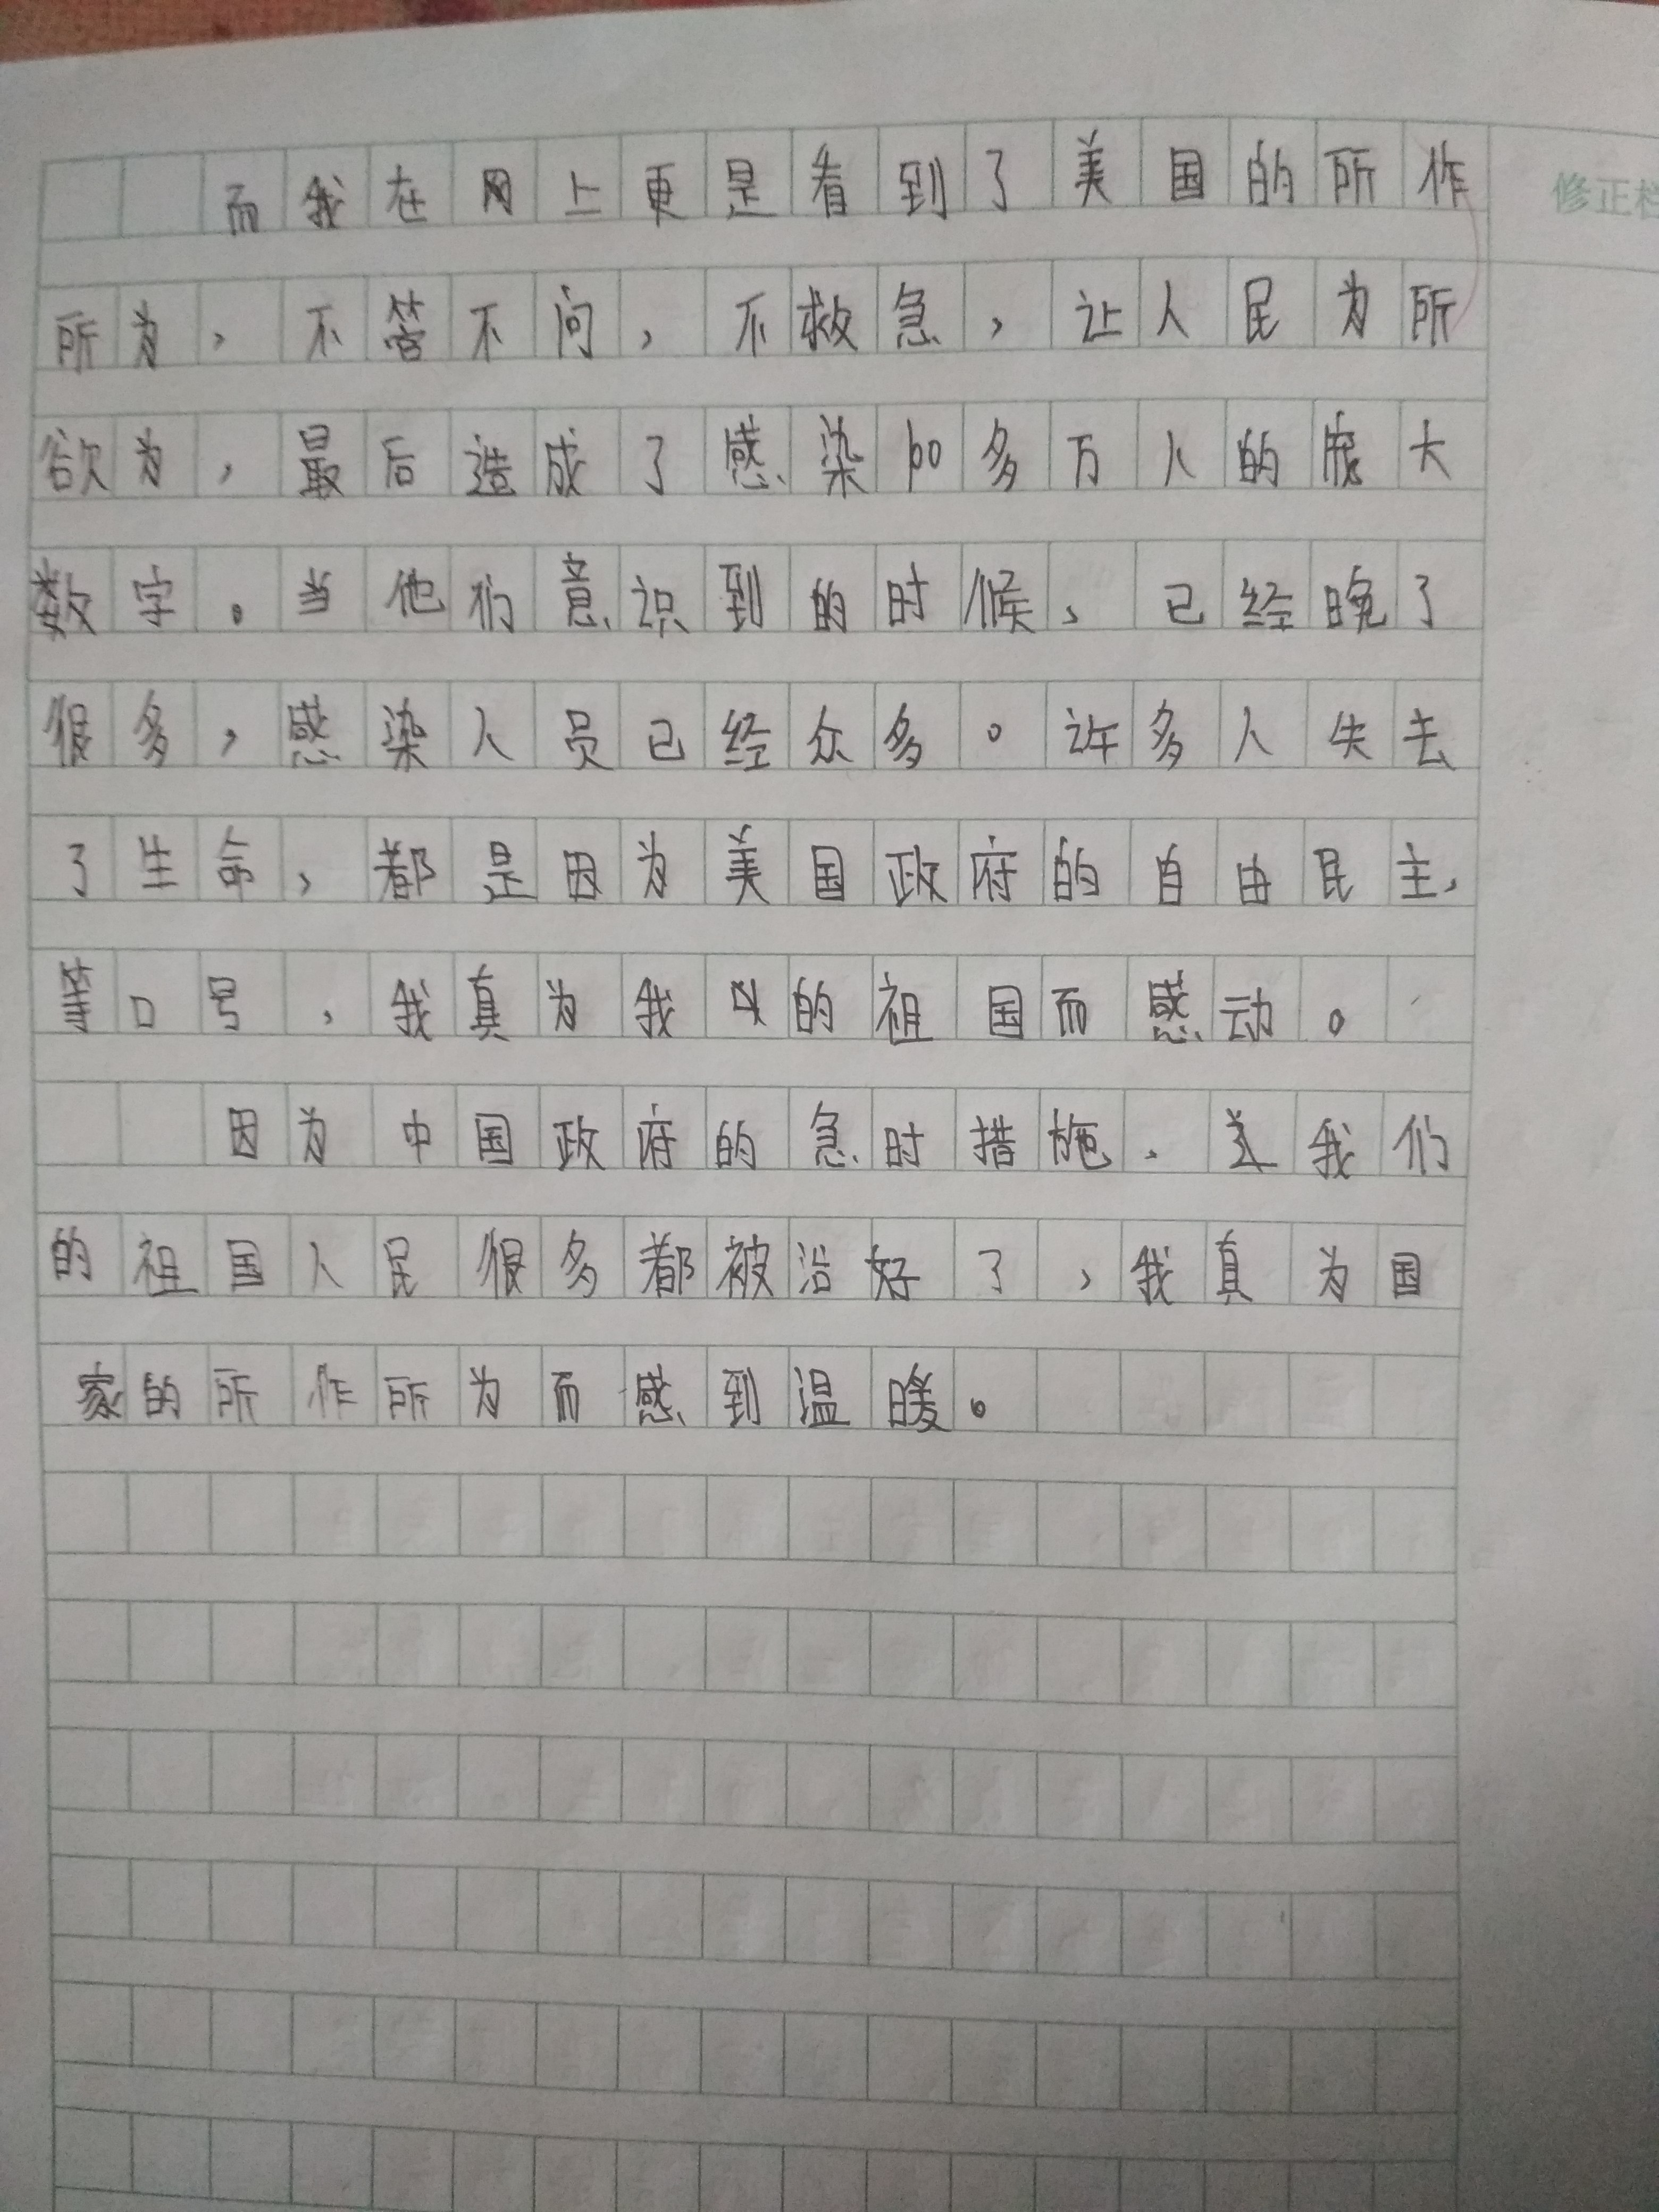 而我在网上更是看到了美国的所作
修正栏
所为，不答不问，不救急，让人民为所
欲为，最后造成了感染100多万人的庞大
数字。当他们意识到的时候，已经晚了
很多，感染人员已经众多。许多人失去
了生命，都是因为美国政府的自由民主，
等口号，我真为我的祖国而感动。
因为中国政府的急时措施，我们
的祖国人民很多都被治好了，我真为国
家的所作所为而感到温暖。